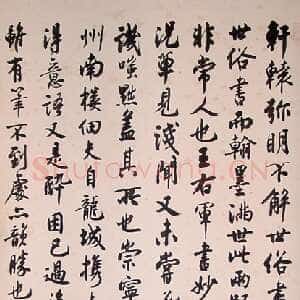 軒轅弥明不解世俗書
世俗書而翰墨滿世此兩
非常人也王右軍書妙
況單見淺聞又未嘗
譏嗤點盖其所也崇寧
州南樓佃夫自龍城携
得意語又是醉困已過
有筆不到處亦韻勝也